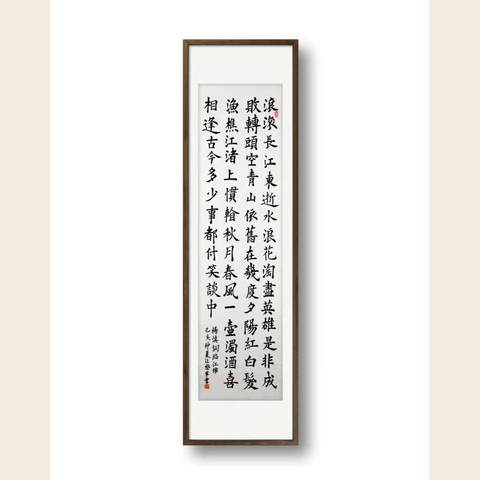 滾滾長江東逝水浪花淘盡英雄是非成
敗轉頭空青山依舊在幾度夕陽紅白髮
漁樵江渚上慣看秋月春風一壺濁酒喜
相逢古今多少事都付笑談中
楊慎詞臨江僊
己亥仲夏
書